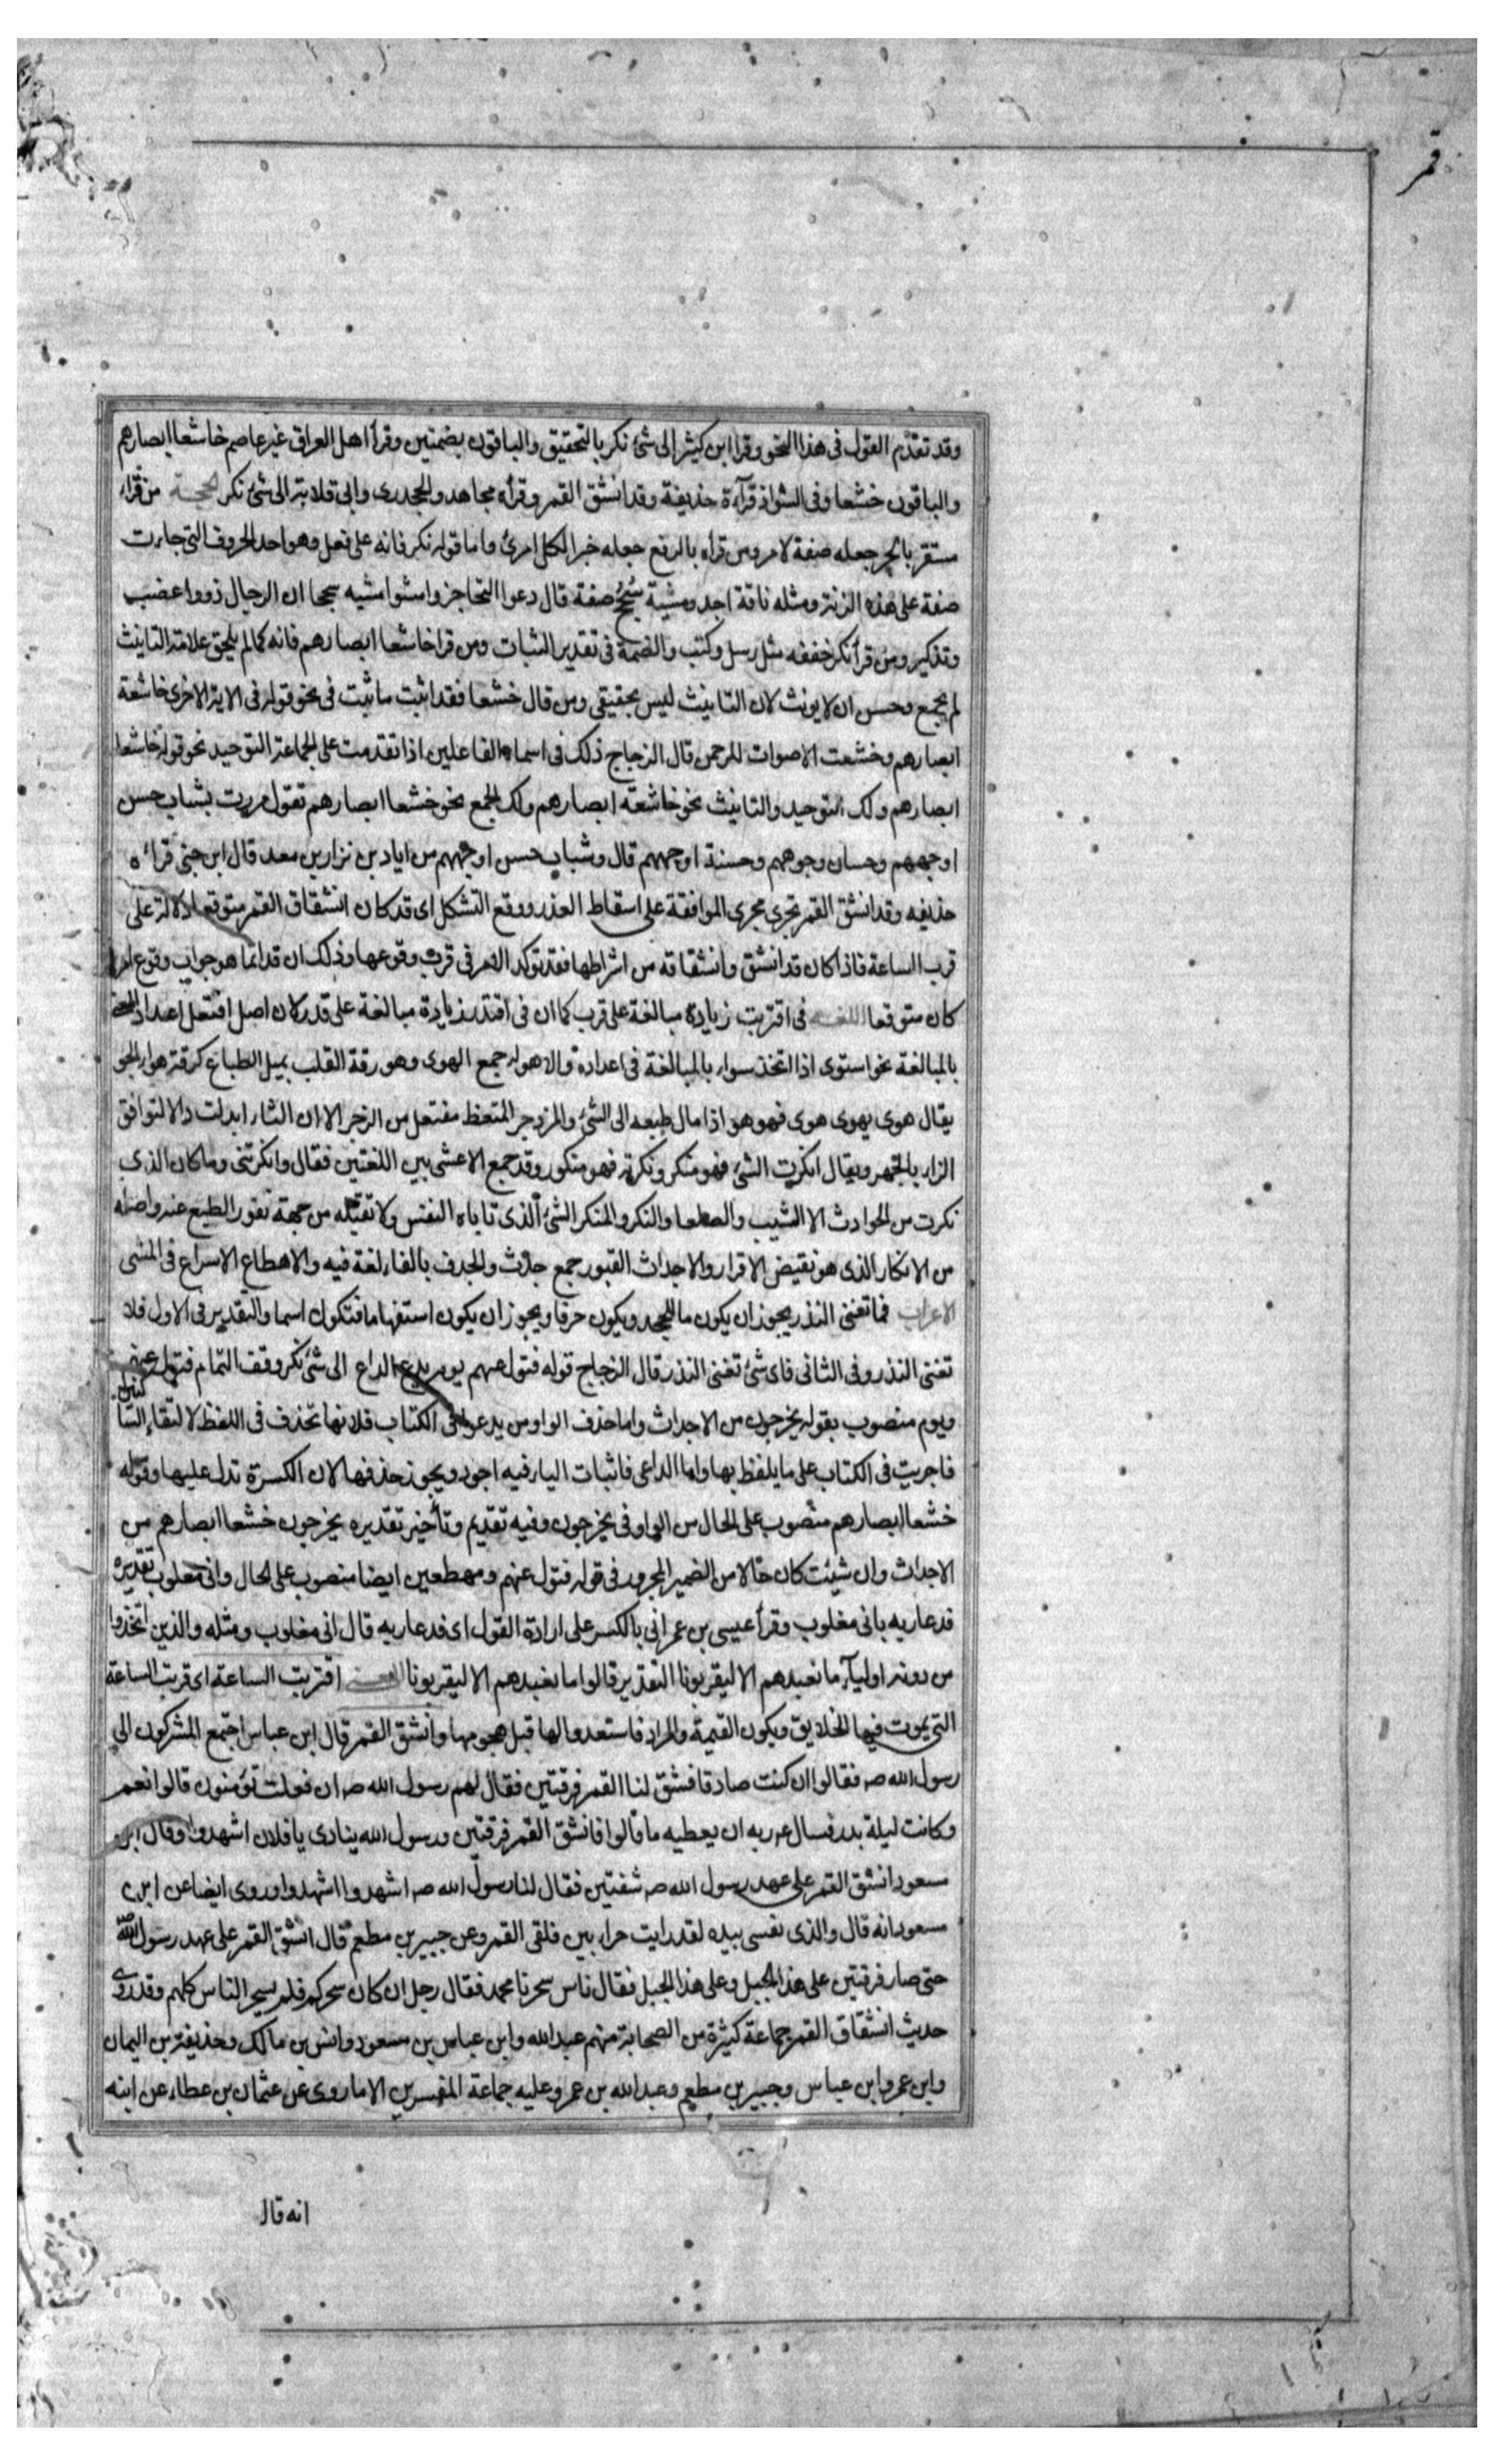 قمر
وقد تقدم القول فی هذا النحو وقرا ابن کثیر الی شئ نکر بالتحقیق والباقون بضمتین وقرأ اهل العراق غیر عاصم خاشعا ابصارهم
والباقون خشعا وفی الشواذ قرآءة حذیفة وقد انشق القمر وقرأه مجاهد والجحدری وابی قلابة الی شئ نکر الحجة من قراء
مستقر بالجر جعله صفة لامر ومن قراه بالرفع جعله خبرا لکل امرئ واما قوله نکر فانه علی فعل وهو احد الحروف التی جاءت
صفة علی هذه الزنة ومثله ناقة اجد ومشیة سُجُح صفة قال دعوا التحاجز وامشوا مشیه سجحا ان الرجال ذووا عضب
وتذکیر ومن قرأ نکر خففه مثل رسل وکتب والضمة فی تقدیر الثبات ومن قرا خاشعا ابصارهم فانه کما لم یلحق علامة التانیث
لم یجمع وحسن ان لا یونث لان التانیث لیس بحقیقی ومن قال خشعا فقد اثبت ما ثبت فی نحو قوله فی الایة الاخری خاشعة
ابصارهم وخشعت الاصوات للرحمن قال الزجاج ذلک فی اسماء الفاعلین اذا تقدمت علی الجماعة التوحید نحو قوله خاشعا
ابصارهم ولک التوحید والتانیث نحو خاشعة ابصارهم ولک الجمع نحو خشعا ابصارهم تقول مررت بشباب حسن
اوجههم وحسان وجوههم وحسنة اوجههم قال وشباب حسن اوجههم من ایاد بن نزار بن معد قال ابن جنی قراءه
حذیفه وقد انشق القمر یجری مجری الموافقة علی اسقاط العذر ووقع التشکل ای قد کان انشقاق القمر متوقعا دلالة علی
قرب الساعة فاذا کان قد انشق وانشقاقه من اشراطها فقد توکد الامر فی قرب وقوعها وذلک ان قد انما هو جواب وقوع امر
کان متوقعا اللغة فی اقتربت زیادة مبالغة علی قرب کما ان فی اقتدر زیادة مبالغة علی قدر لان اصل افتعل اعداد المعنی
بالمبالغة نحو استوی اذا اتخذ سواء بالمبالغة فی اعداده والاهواء جمع الهوی وهو رقة القلب بمیل الطباع کرقة هواء الجو
یقال هوی یهوی هوی فهو هو اذا مال طبعه الی الشئ والمزدجر المتعظ مفتعل من الزجر الا ان التاء ابدلت دالا لتوافق
الزاء بالجهر ویقال انکرت الشئ فهو منکر ونکرته فهو منکور وقد جمع الاعشی بین اللغتین فقال وانکرتنی وما کان الذی
نکرت من الحوادث الا الشیب والصلعا والنکر والمنکر الشئ الذی تاباه النفس ولا تقبله من جهة نفور الطبع عنه واصله
من الانکار الذی هو نقیض الاقرار والاجداث القبور جمع جدث والجدف بالفاء لغة فیه والاهطاع الاسراع فی المشی
الاعراب فما تغنی النذر یجوز ان یکون ما للجحد ویکون حرفا ویجوز ان یکون استفهاما فتکون اسما والتقدیر فی الاول فلا
تغنی النذر وفی الثانی فای شئ تغنی النذر قال الزجاج قوله فتول عنهم یوم یدع الداع الی شئ نکر وقف التمام فتول عنهم
ویوم منصوب بقوله یخرجون من الاجداث واما حذف الواو من یدعو فی الکتاب فلانها تحذف فی اللفظ لالتقاء السا کنین
فاجریت فی الکتاب علی ما یلفظ بها واما الداعی فاثبات الیاء فیه اجود ویجوز حذفها لان الکسرة تدل علیها وقوله
خشعا ابصارهم منصوب علی الحال من الواو فی یخرجون وفیه تقدیم وتأخیر تقدیره یخرجون خشعا ابصارهم من
الاجداث وان شئت کان حالا من الضمیر المجرور فی قوله فتول عنهم ومهطعین ایضا منصوب علی الحال وانی مغلوب تقدیره
فدعا ربه بانی مغلوب وقرأ عیسی بن عمر انی بالکسر علی ارادة القول ای فدعا ربه قال انی مغلوب ومثله والذین اتخذوا
من دونه اولیآء ما نعبدهم الا لیقربونا التقدیر قالوا ما نعبدهم الا لیقربونا المعنی اقتربت الساعة ای قربت الساعة
التی یموت فیها الخلایق ویکون القیمة والمراد فاستعدوا لها قبل هجومها وانشق القمر قال ابن عباس اجتمع المشرکون الی
رسول الله صه فقالوا ان کنت صادقا فشق لنا القمر فرقتین فقال لهم رسول الله صه ان فعلت تؤمنون قالوا نعم
وکانت لیلة بدر فسال عه ربه ان یعطیه ما قالوا فانشق القمر فرقتین ورسول الله ینادی یا فلان اشهدوا وقال ابن
مسعود انشق القمر علی عهد رسول الله صه شقتین فقال لنا رسول الله صه اشهدوا اشهدوا وروی ایضا عن ابن
مسعود انه قال والذی نفسی بیده لقد رایت حراء بین فلقی القمر وعن جبیر بن مطعم قال انشق القمر علی عهد رسول الله صه
حتی صار فرقتین علی هذا الجبل وعلی هذا الجبل فقال ناس سحرنا محمد فقال رجل ان کان سحرکم فلم یسحر الناس کلهم وقد روی
حدیث انشقاق القمر جماعة کثیرة من الصحابة منهم عبد الله وابن عباس بن مسعود وانس بن مالک وحذیفة بن الیمان
وابن عمر وابن عباس وجبیر بن مطعم وعبد الله بن عمر وعلیه جماعة المفسرین الا ما روی عن عثمان بن عطاء عن ابنه
انه قال